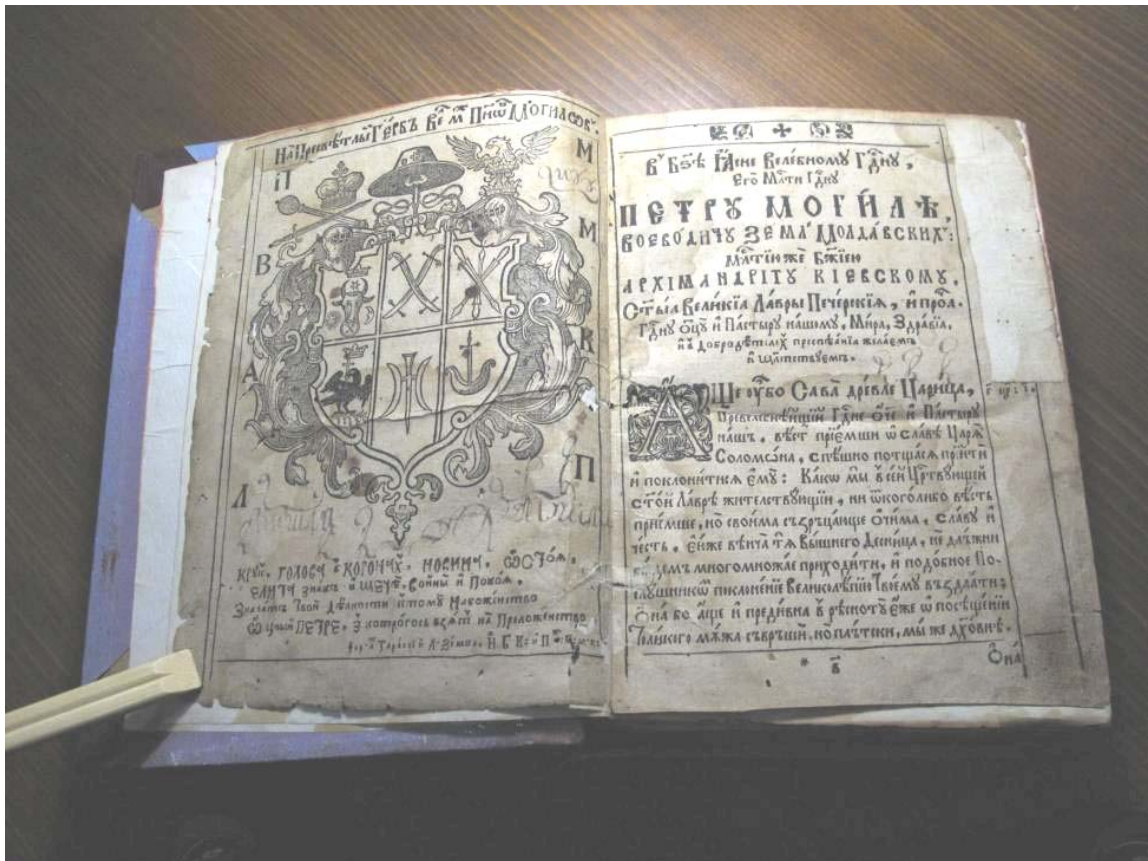 На Пресвѣтлый Гербъ Вел҃ М҃ Пнѡ҃ Могиловъ.
П М
В М
А К
Л П
Крꙋкъ, голова в коронахъ,
знакъ войны и Покоя,
Знакомъ твоей дѣлности и томꙋ Набоженство
Ѿ цный ПЕТРЕ, з которогось взятъ на Преложенство
В Бозѣ Гасне Велебномꙋ Гдн҃ꙋ,
Его Млти Гдн҃ꙋ
ПЕТРꙊ МОГИЛѢ,
ВОЕВОДИЧꙊ ЗЕМЛ҃ МОЛДАВСКИХЪ:
Млтїи же Бж҃їею
АРХІМАНДРІТꙊ КІЕВСКОМꙊ,
Ст҃ыѧ Великїѧ Лавры Печерскїѧ, и про҃ч.
Гдн҃ꙋ Ѻц҃ꙋ и Пастырꙋ нашомꙋ, Мира, Здравїѧ,
и в добродѣтелїхъ преспѣѧнїѧ желаемъ
и щаствствꙋемъ.
АЩе оубо Сава древле Царица,
Превелебнѣйшїй Гдн҃е Ѻч҃е и Пастырꙋ
нашъ, вѣсть прїемши ѡ славѣ Царѧ
Соломѡна, спѣшно потщасѧ прїити
и поклонитисѧ емꙋ: Какѡ мы в сей Црствꙋющей
ст҃ой Лаврѣ жителствꙋющїи, ни ѿ коголико вѣсть
прїемше, но своима съзрѧще Ѻчима, славꙋ и
честь, еюже вѣнча тѧ Вышнего Десница, не длъжни
бꙋдемъ многомножае приходити, и подобное По-
слꙋшникѡ҃ поклоненїе Великолѣпїю Твоемꙋ въздати:
Ѻна бо аще и предивна в рѣснотꙋ еже ѡ посѣщенїи
Толикого мꙋжа съвръши, но плътски, мы же дх҃овнѣ.
в҃
Ѻна